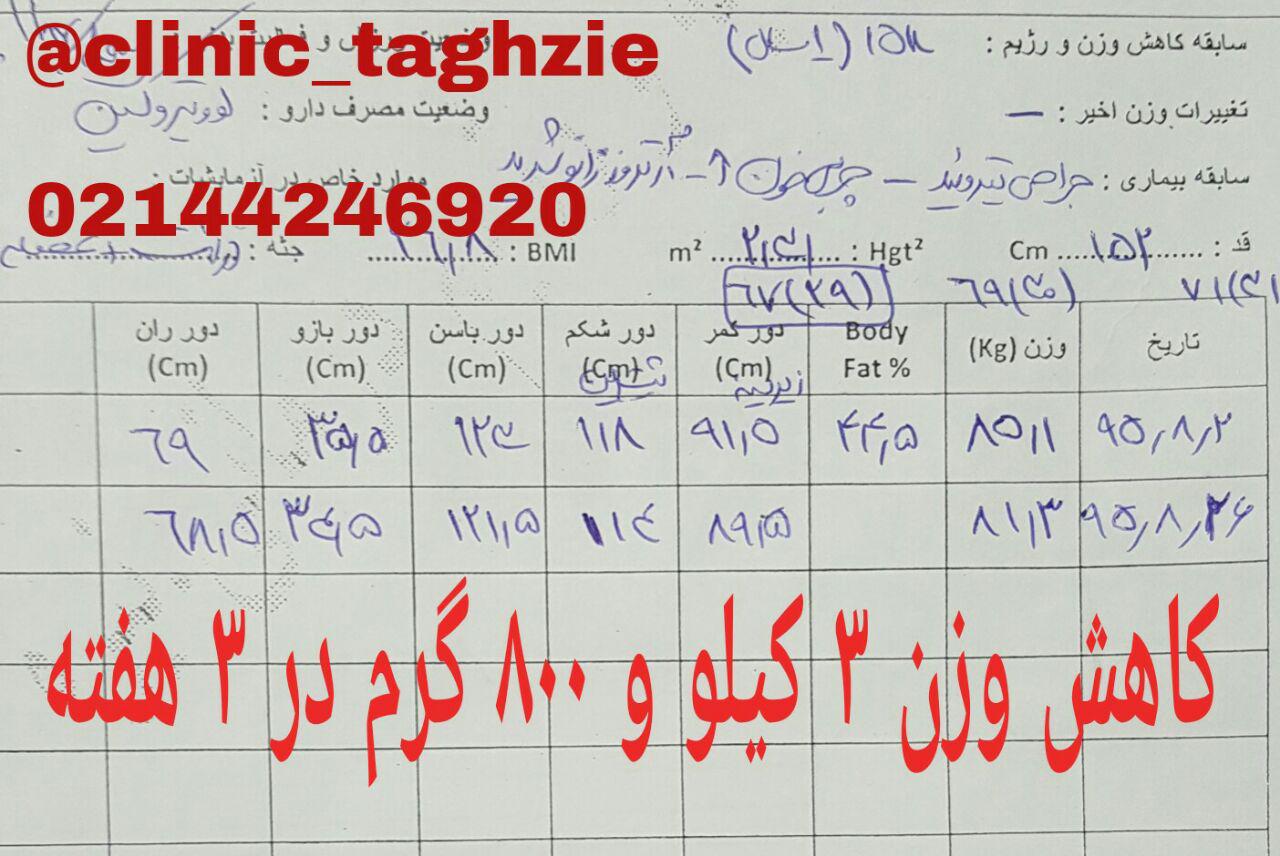 @clinic_taghzie
سابقه کاهش وزن و رژیم :
تغییرات وزن اخیر : —
وضعیت مصرف دارو : لووتیروکسین
02144246920
سابقه بیماری : جراحی تیروئید — چربی خون ↑ — آرتروز زانو شدید
موارد خاص در آزمایشات :
قد : ۱۵۲ Cm Hgt² : ۲٫۳۱ m² BMI : جثه :
۷۱(۳۱) ۶۹(۳۰) ۶۷(۲۹)
تاریخ وزن (Kg) Body Fat % دور کمر (Cm) دور شکم (Cm) دور باسن (Cm) دور بازو (Cm) دور ران (Cm)
زیر سینه
۹۵٫۸٫۲ ۸۵٫۱ ۴۴٫۵ ۹۱٫۵ ۱۱۸ ۱۲۴ ۳۵٫۵ ۶۹
۹۵٫۸٫۲۶ ۸۱٫۳ ۸۹٫۵ ۱۱۴ ۱۲۱٫۵ ۳۴٫۵ ۶۸٫۵
کاهش وزن ۳ کیلو و ۸۰۰ گرم در ۳ هفته